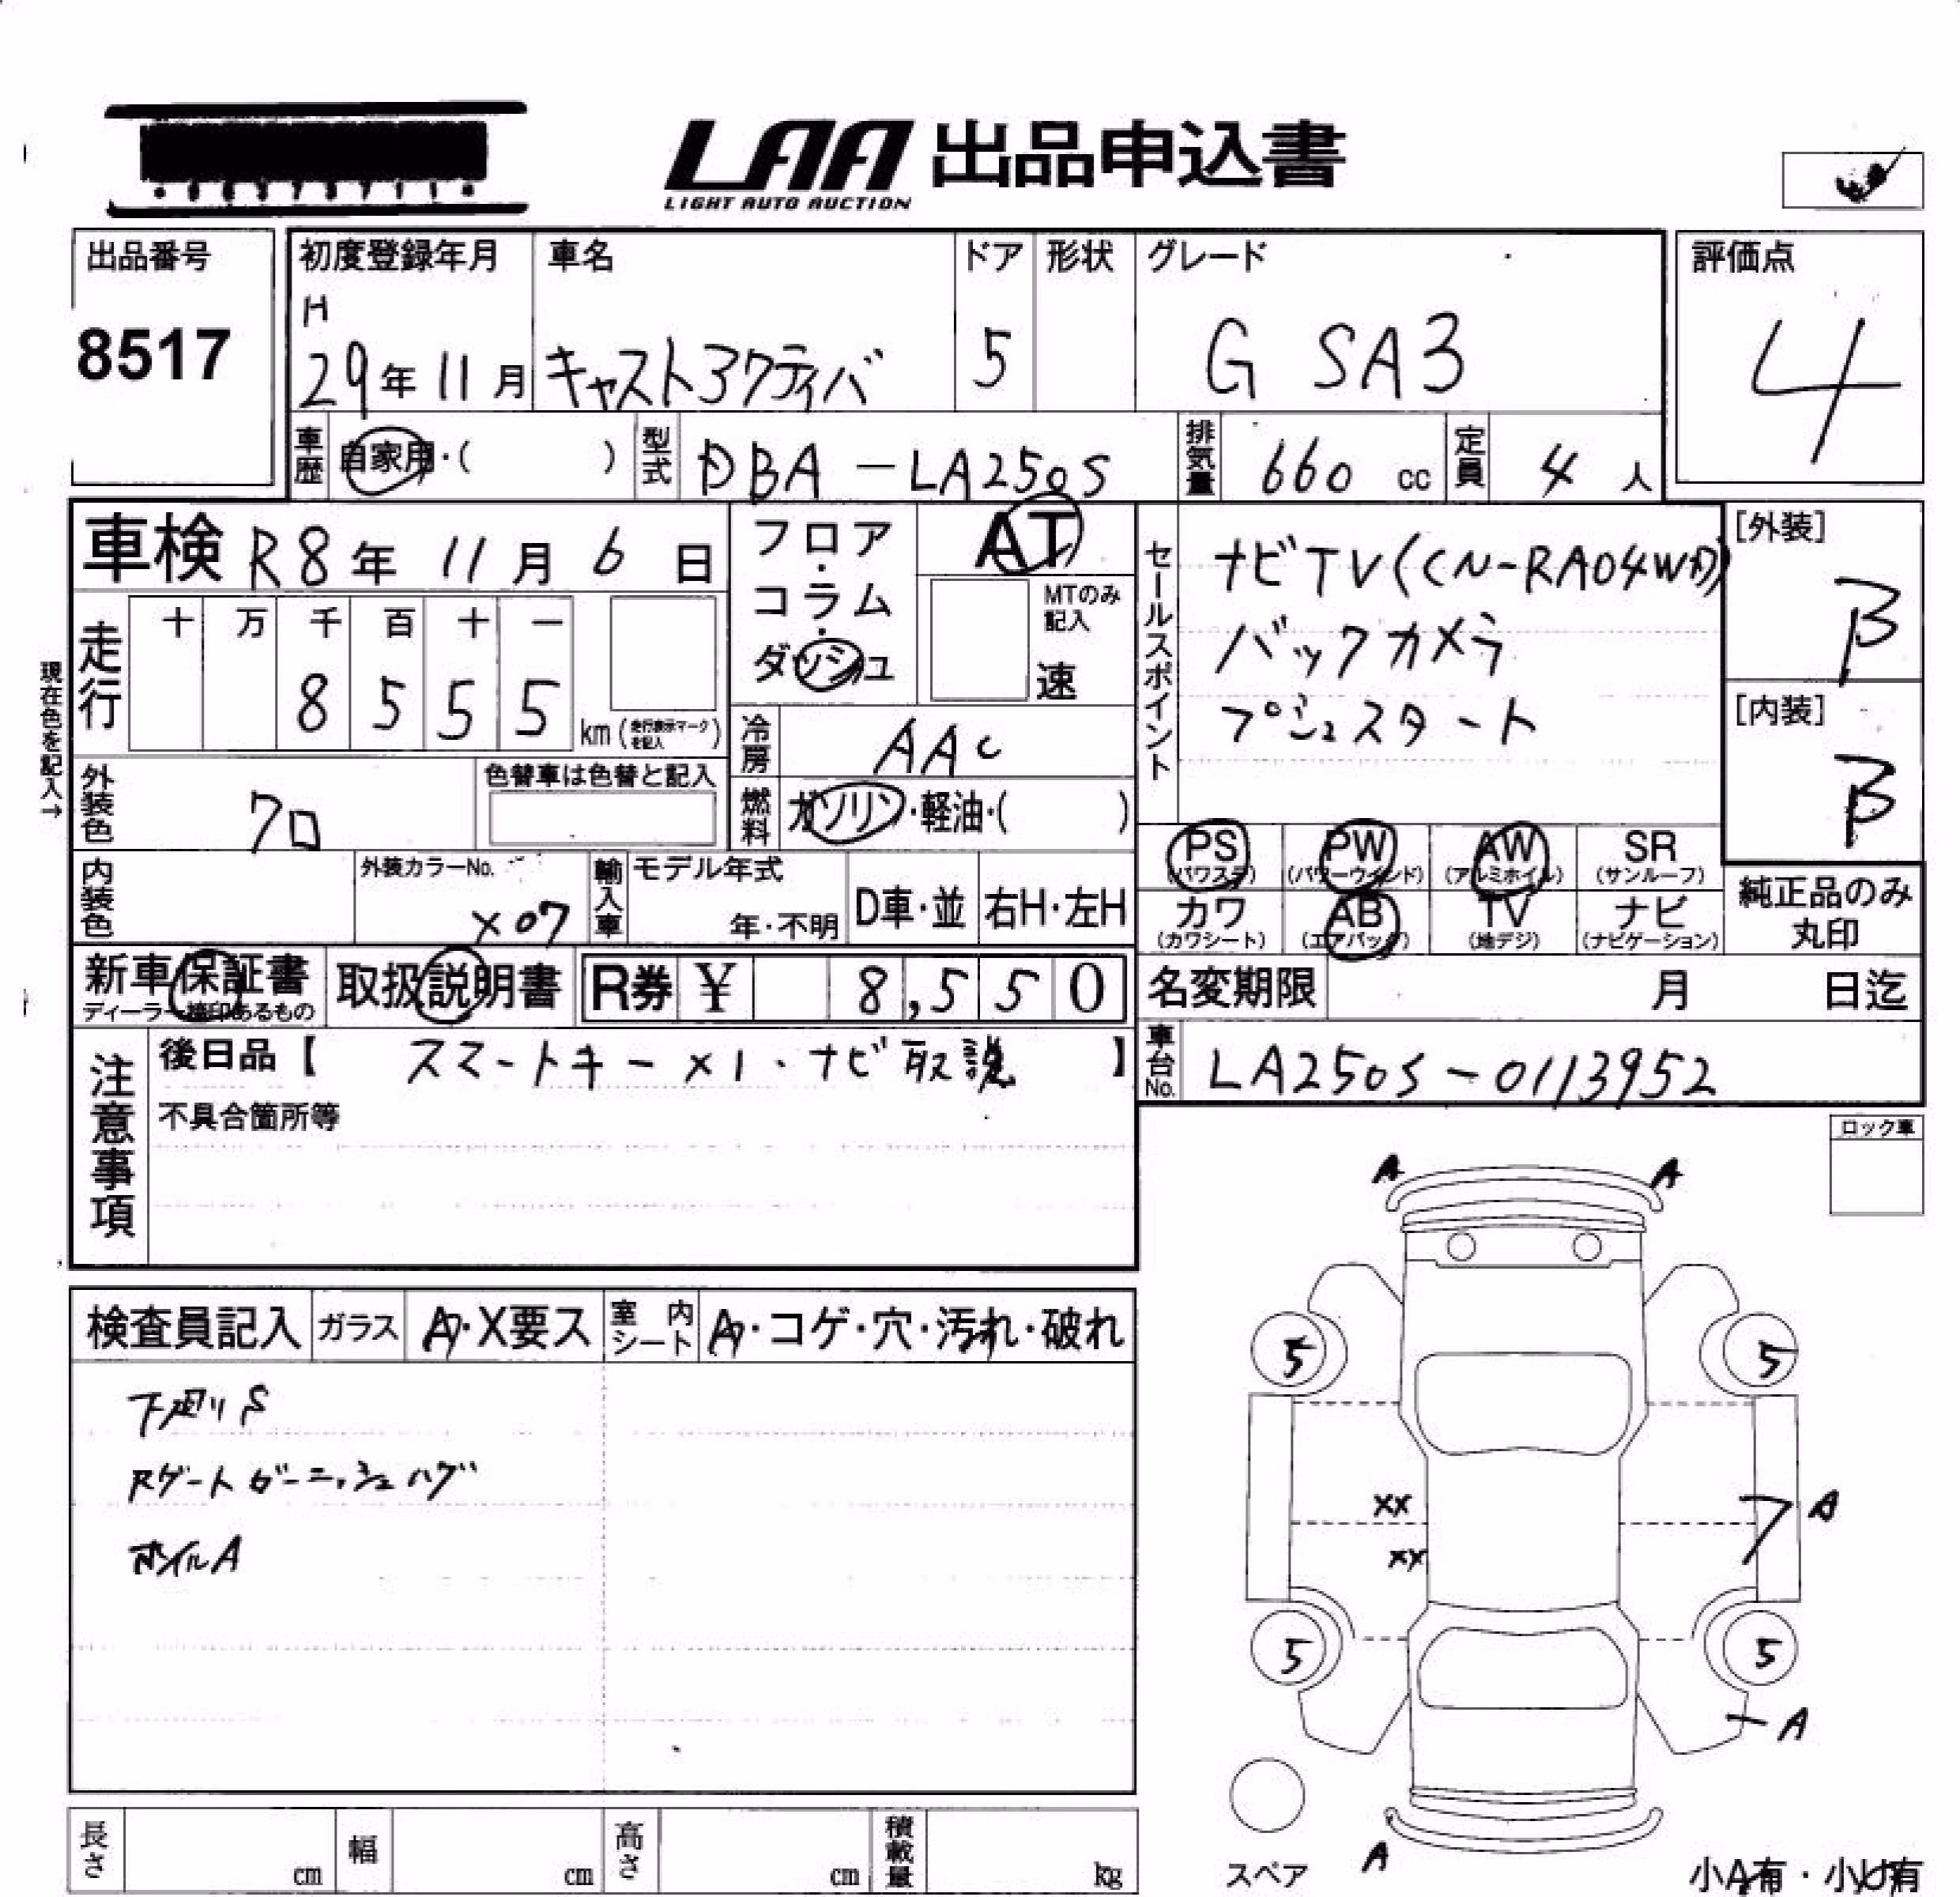 LAA 出品申込書
LIGHT AUTO AUCTION
出品番号
8517
初度登録年月
H
29年 11月
車名
キャストアクティバ
ドア
5
形状
グレード
G SA3
評価点
4
車歴 自家用・( )
型式 DBA-LA250S
排気量 660 cc
定員 4 人
車検 R8年 11月 6日
フロア・コラム・ダッシュ
AT
MTのみ記入
速
セールスポイント
ナビTV(CN-RA04WD)
バックカメラ
プシュスタート
[外装]
B
[内装]
B
現在色を記入→
走行 十 万 千 百 十 一
8 5 5 5 km (走行表示マークを記入)
冷房 AAC
外装色 クロ
色替車は色替と記入
燃料 ガソリン・軽油・( )
内装色
外装カラーNo.
X07
輸入車
モデル年式
年・不明
D車・並
右H・左H
PS (パワステ)
PW (パワーウインド)
AW (アルミホイル)
SR (サンルーフ)
カワ (カワシート)
AB (エアバッグ)
TV (地デジ)
ナビ (ナビゲーション)
純正品のみ丸印
新車保証書
ディーラー捺印あるもの
取扱説明書
R券 ¥ 8,550
名変期限 月 日迄
注意事項
後日品【 スマートキー×1・ナビ取説 】
不具合箇所等
車台No. LA250S-0113952
ロック車
検査員記入
ガラス A・X要ス
室内シート A・コゲ・穴・汚れ・破れ
下廻りS
Rゲートガーニッシュハゲ
ホイルA
A A
5 5
XX
A
XX
5 5
A
A
スペア
小A有・小U有
長さ cm
幅 cm
高さ cm
積載量 kg